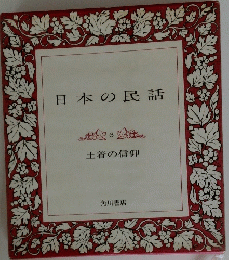 日本の民話
8
土着の信仰
角川書店